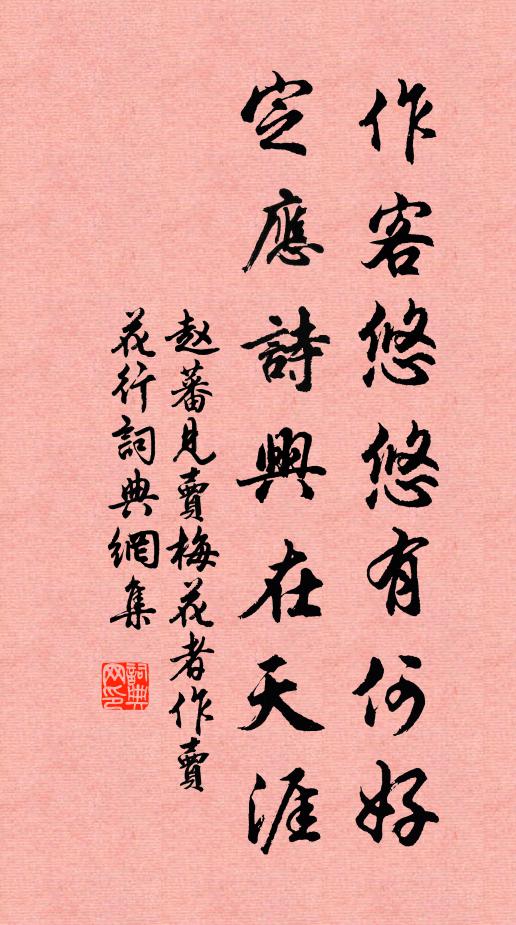 作客悠悠有何好
定應詩興在天涯
赵蕃見賣梅花者作賣
花行詞典網集
詞典网印